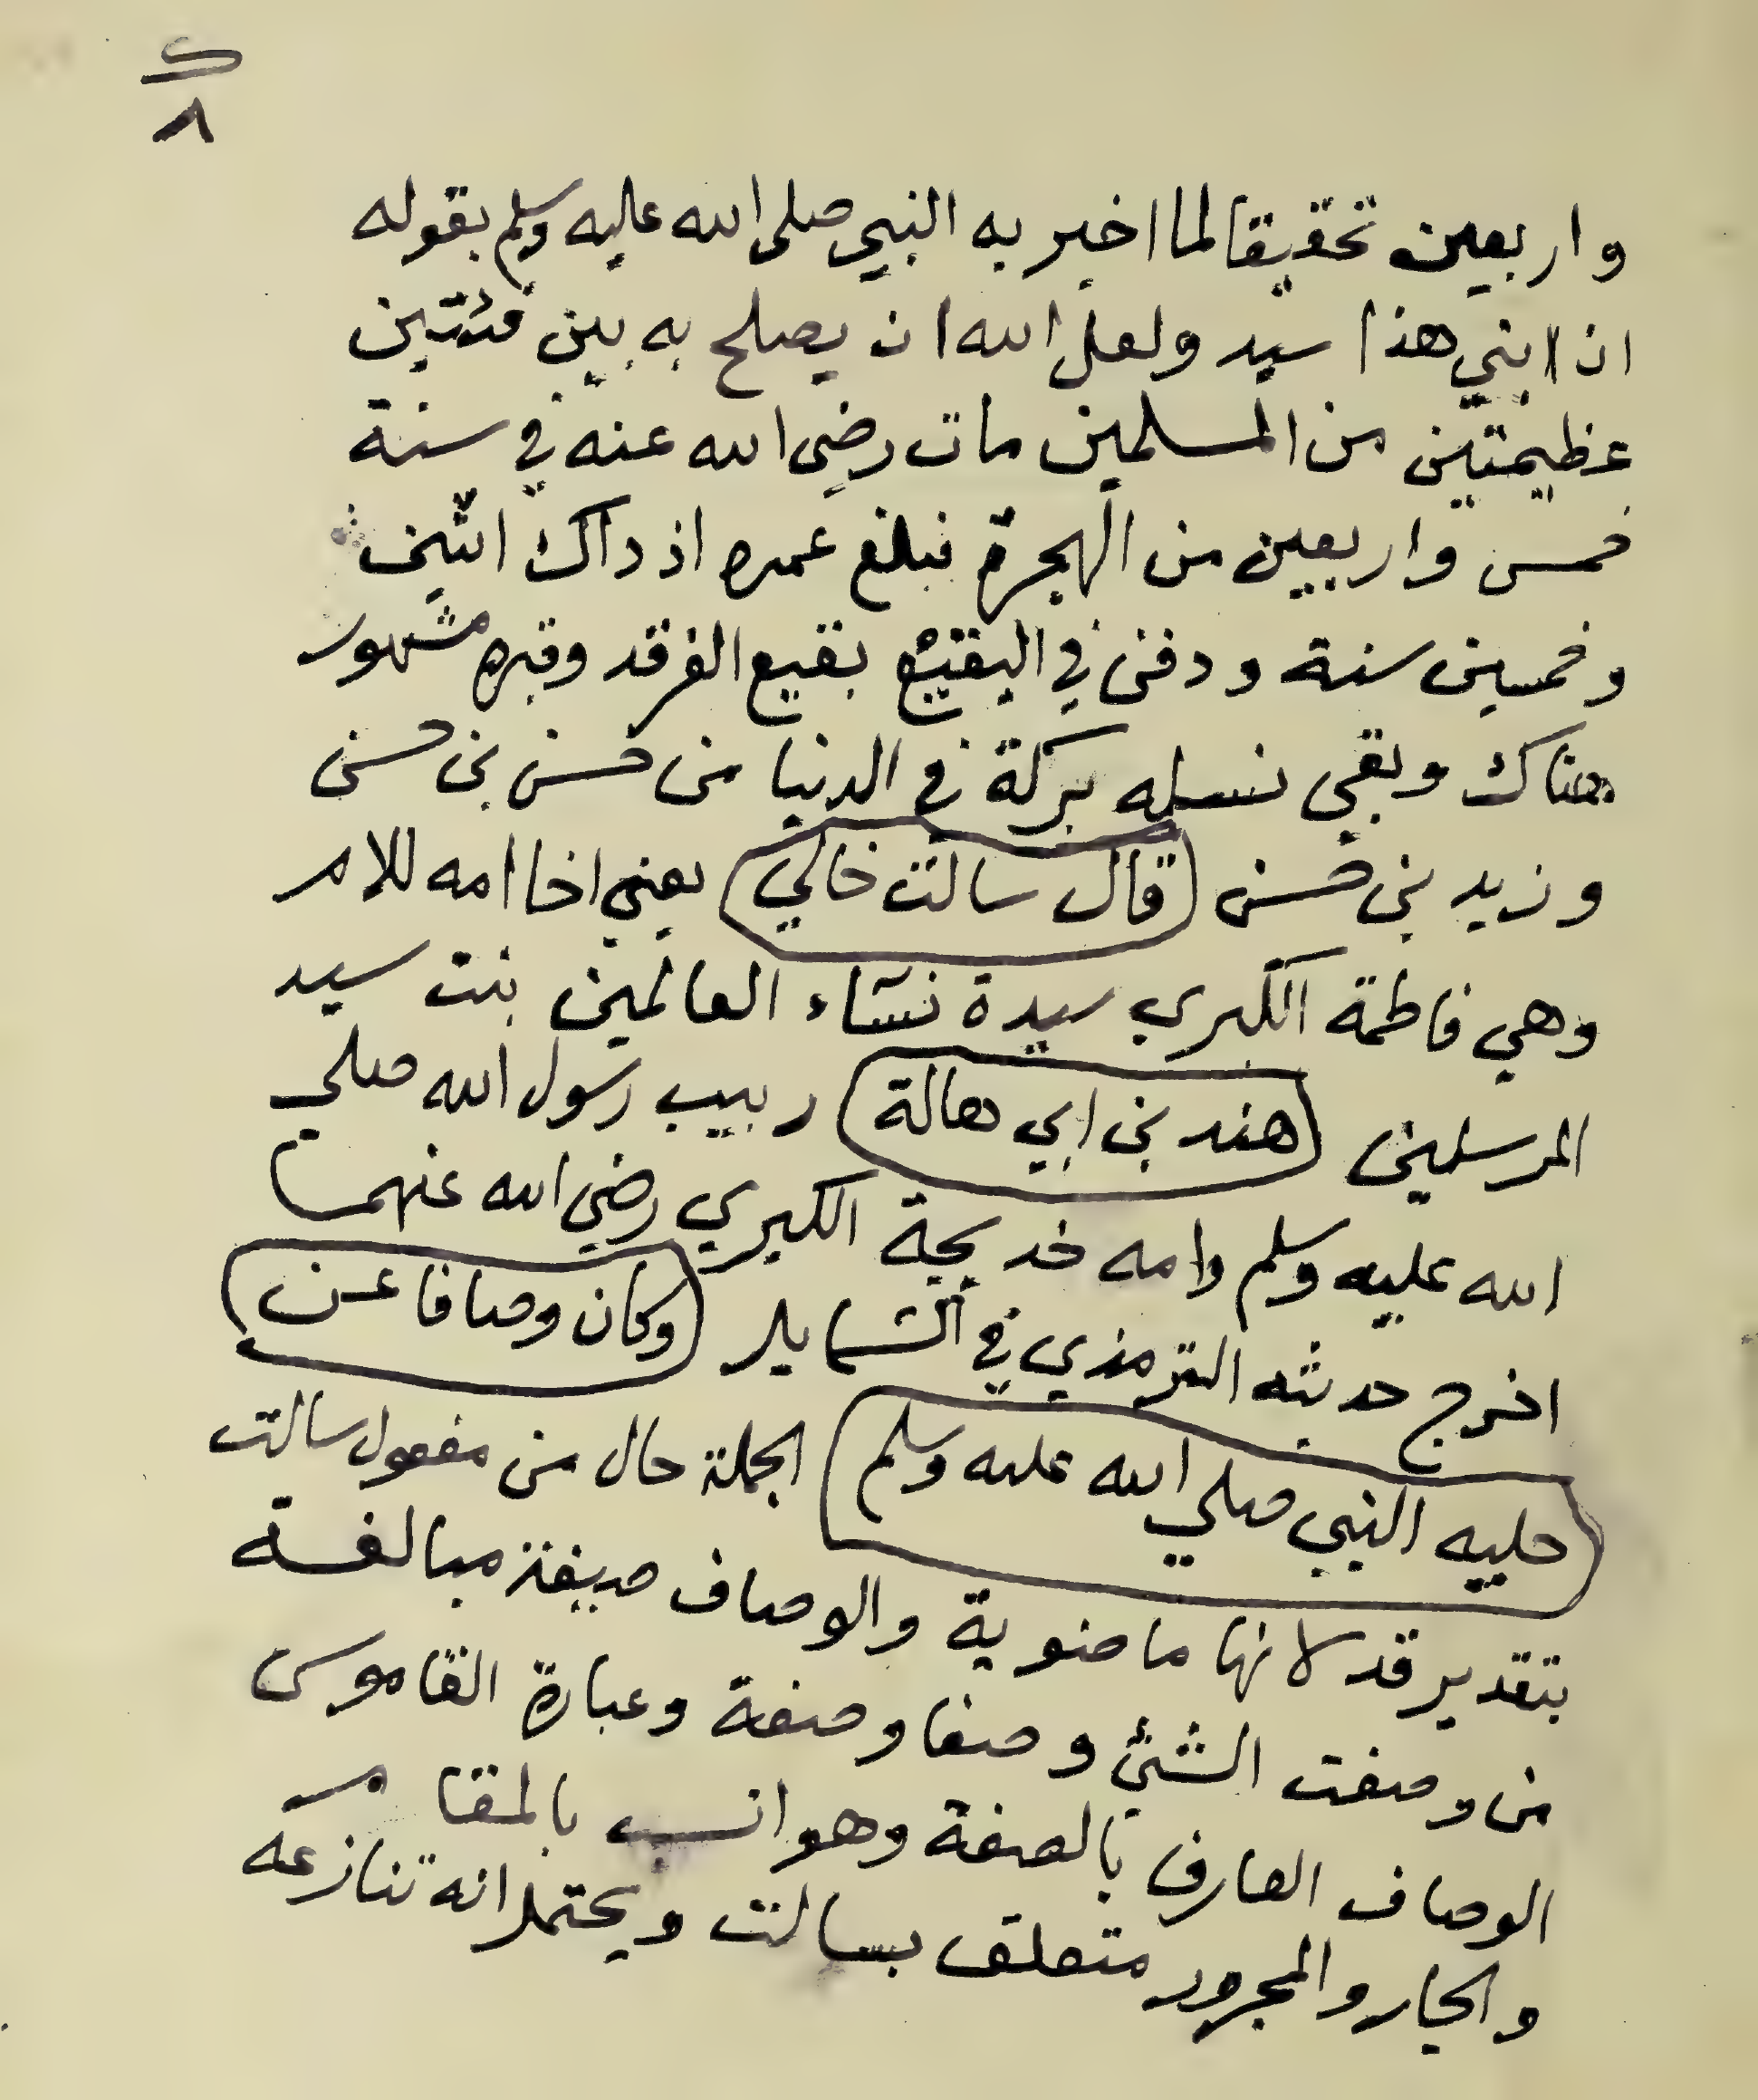 ك
٨
واربعين تحقيقا لما اخبر به النبي صلى الله عليه وسلم بقوله
ان ابني هذا سيد ولعل الله ان يصلح به بين فئتين
عظيمتين من المسلمين مات رضي الله عنه في سنة
خمس واربعين من الهجرة فبلغ عمره اذ داك اثنين
وخمسين سنة ودفن في البقيع بقيع الفرقد وقبره مشهور
هناك وبقي نسله بركة في الدنيا من حسن بن حسن
وزيد بن حسن (قال سالت خالي) يعني اخا امه للام
وهي فاطمة الكبري سيدة نسآء العالمين بنت سيد
المرسلين (هند بن ابي هالة) ربيب رسول الله صلي
الله عليه وسلم وامه خديجة الكبري رضي الله عنهما
اخرج حديثه الترمذي في الشمايل (وكان وصافا عن
حليه النبي صلي الله عليه وسلم) الجملة حال من مفعول سالت
بتقدير قد لانها ماضوية والوصاف صيغة مبالغة
من وصفت الشئ وصفا وصفة وعبارة القاموس
الوصاف العارف بالصفة وهو انسب بالمقام
والجار والمجرور متعلق بسالت ويحتمل انه تنازعه